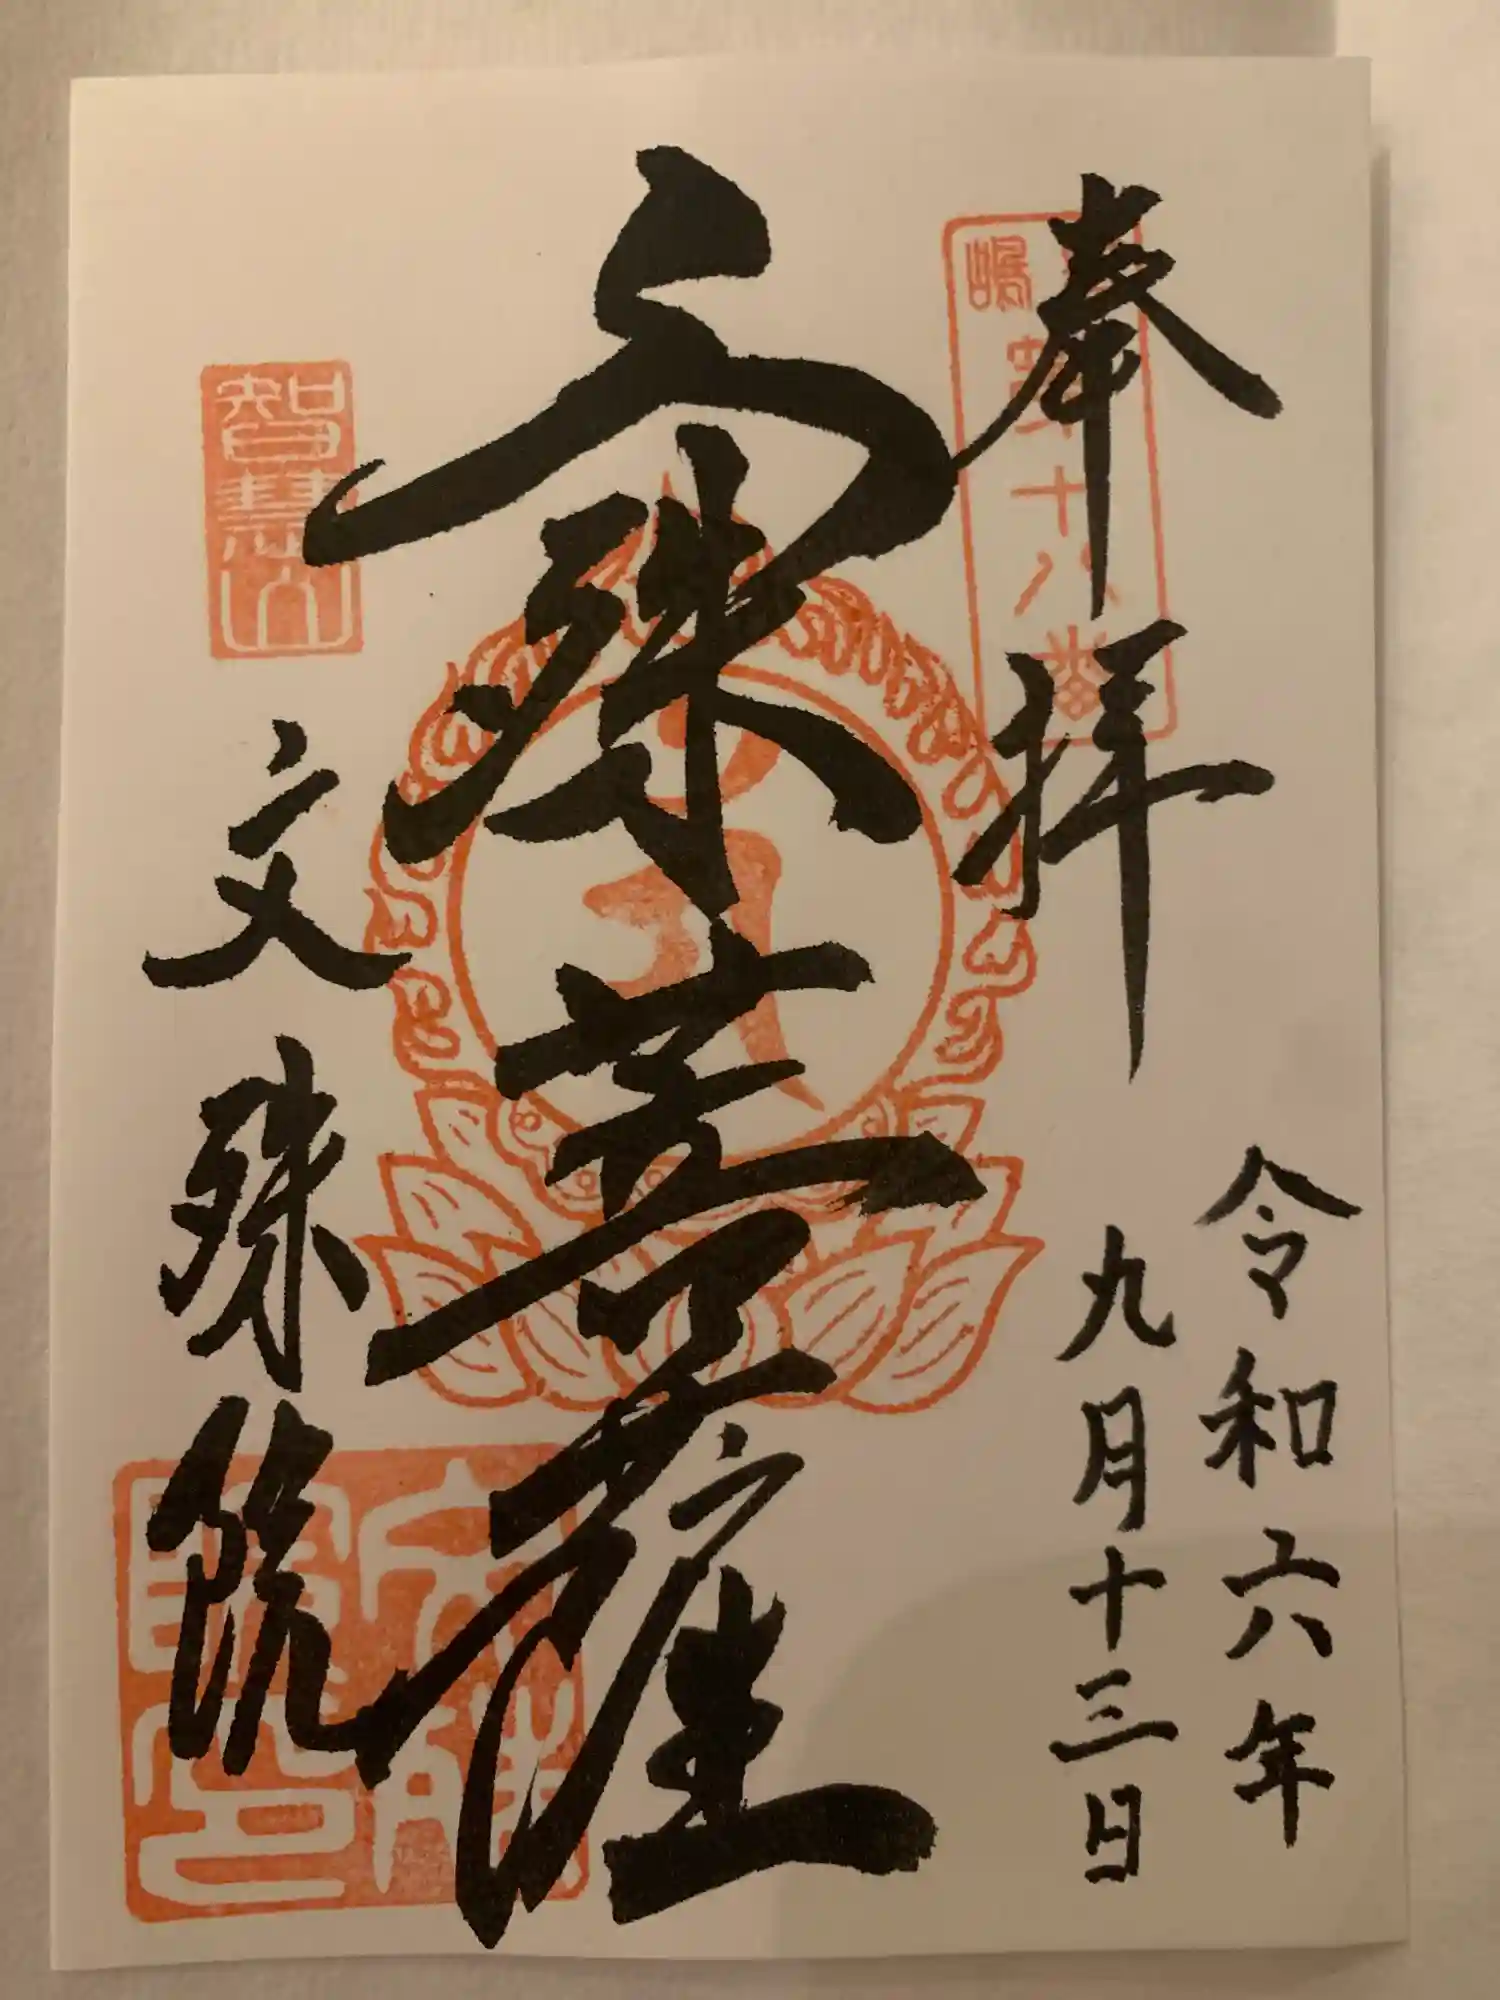 奉拝
嶋
第十八番
令和六年
九月十三日
文殊菩薩
智慧山
文殊院
文殊
院印